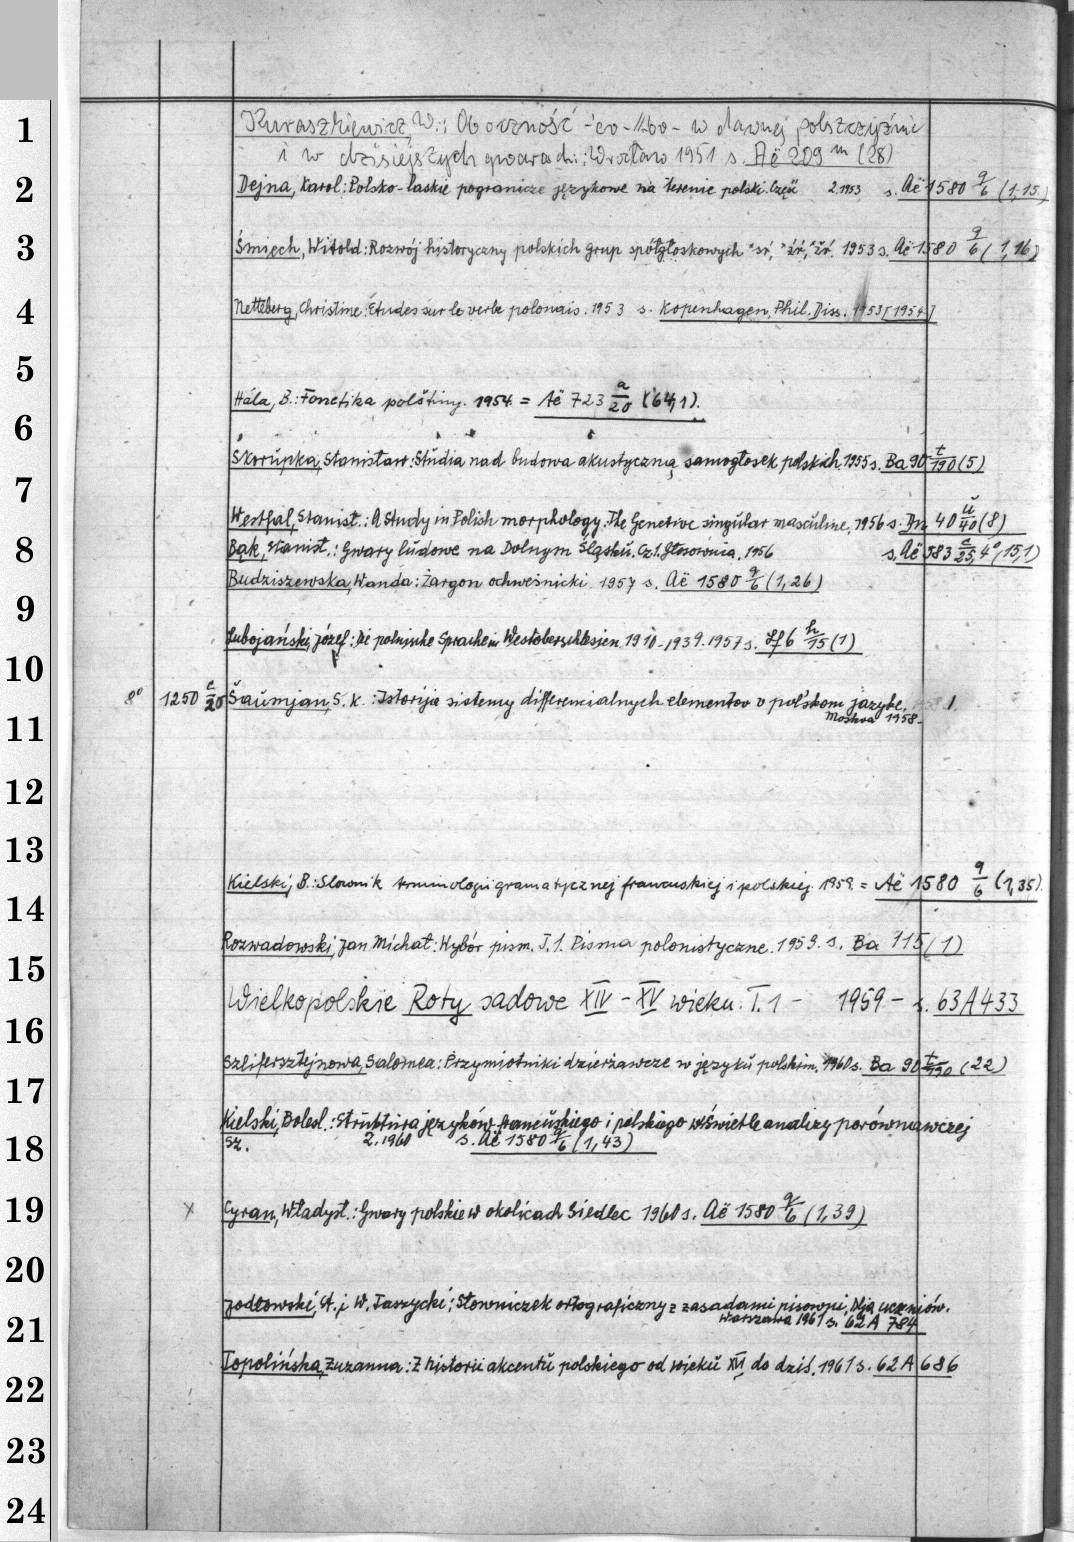 1
Kuraszkiewicz, W.: Oboczność -'ev-//-'ov- w dawnej polszczyźnie
i w dzisiejszych gwarach. Wrocław 1951 s. Aë 209 m (28)
2
Dejna, Karol: Polsko-laskie pogranicze językowe na terenie polski. Część 2. 1953 s. Aë 1580 q/6 (1,15)
3
Śmiech, Witold: Rozwój historyczny polskich grup spółgłoskowych *sŕ, *źŕ, *žŕ. 1953 s. Aë 1580 q/6 (1,16)
4
Netteberg, Christine: Études sur le verbe polonais. 1953 s. Kopenhagen, Phil. Diss. 1953 [1954]
5
Hála, B.: Fonetika polštiny. 1954. = Aë 723 a/20 (64,1).
6
Skorupka, Stanisław: Studia nad budowa akustyczną samogłosek polskich 1955 s. Ba 90 t/190 (5)
7
Westfal, Stanisł.: A Study in Polish morphology. The Genetive singular masculine. 1956 s. 40 ü/40 (8)
8
Bąk, Stanisł.: Gwary ludowe na Dolnym Śląsku. Cz.1. Głosownia. 1956 s. Aë 383 c/25, 4°, (15,1)
Budziszewska, Wanda: Żargon ochweśnicki 1957 s. Aë 1580 q/6 (1,26)
9
Lubojański, Józef: Die polnische Sprache in Westoberschlesien 1910-1939. 1957 s. h/15 (1)
10
8° 1250 c/20 Šaumjan, S. K.: Istorija sistemy differencialnych elementov v pol'skom jazyke. 1.
11
Moskva 1958.
12
13
Kielski, B.: Słownik terminologii gramatycznej francuskiej i polskiej. 1959. = Aë 1580 q/6 (1,35).
14
Rozwadowski, Jan Michał: Wybór pism. T. 1. Pisma polonistyczne. 1959. s. Ba 115 (1)
15
Wielkopolskie Roty sadowe XIV - XV wieku. T. 1 - 1959 - s. 63 A 433
16
Szlifersztejnowa, Salomea: Przymiotniki dzierżawcze w języku polskim. 1960 s. Ba 90 t/190 (22)
17
Kielski, Bolesł.: Struktura języków francuskiego i polskiego w świetle analizy porównawczej
Sz. 2. 1960 s. Aë 1580 q/6 (1,43)
18
19
x Cyran, Władysł.: Gwary polskie w okolicach Siedlec 1960 s. Aë 1580 q/6 (1,39)
20
Jodłowski, St. i W. Taszycki: Słowniczek ortograficzny z zasadami pisowni. Dla uczniów.
21
Warszawa 1961 s. 62 A 784
Topolińska, Zuzanna: Z historii akcentu polskiego od wieku XVI do dziś. 1961 s. 62 A 686
22
23
24